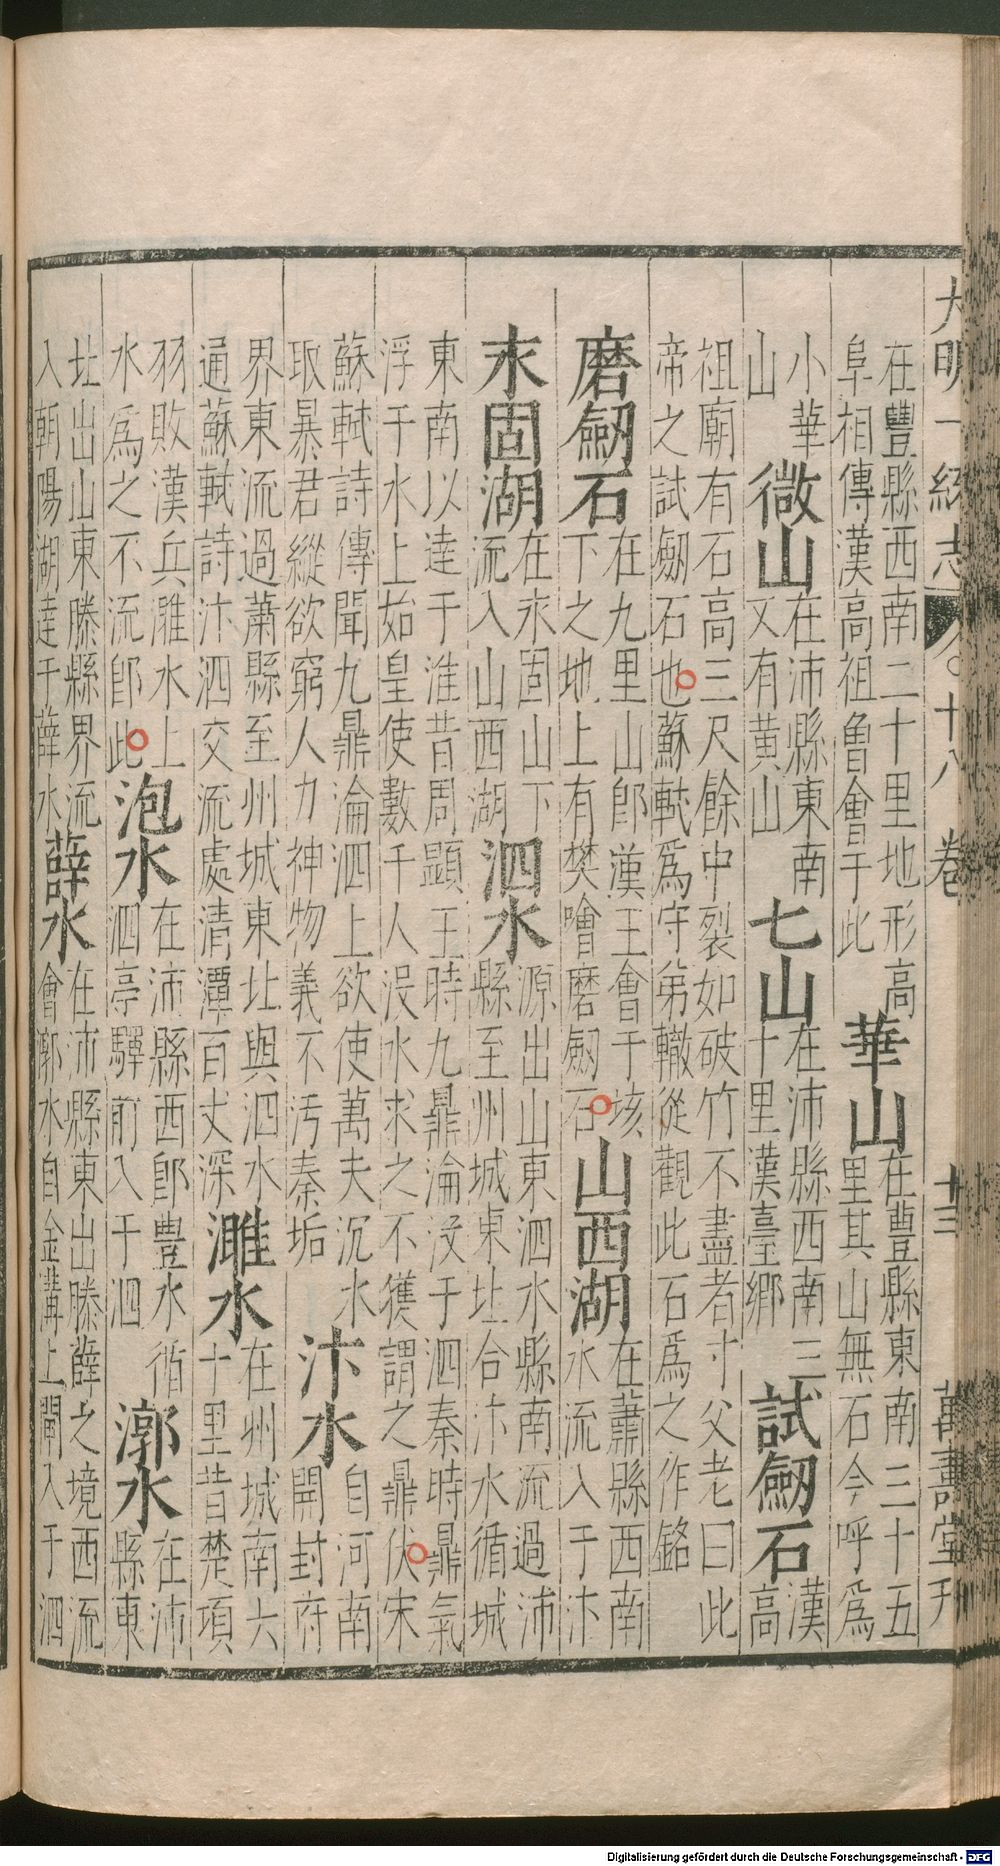 大明一統志 十八卷 十三 萬壽堂刊
在豐縣西南二十里地形高
阜相傳漢高祖魯會于此
華山
在豊縣東南三十五
里其山無石今呼爲
小華
山
微山
在沛縣東南
又有黄山
七山
在沛縣西南三
十里漢臺鄉
試劒石
漢
高
祖廟有石高三尺餘中裂如破竹不盡者寸父老曰此
帝之試劒石也蘇軾爲守弟轍從觀此石爲之作銘
磨劒石
在九里山即漢王會于垓
下之地上有樊噲磨劒石
山西湖
在蕭縣西南
水流入于汴
末固湖
在永固山下
流入山西湖
泗水
源出山東泗水縣南流過沛
縣至州城東北合汴水循城
東南以達于淮昔周顯王時九鼎淪没于泗秦時鼎氣
浮于水上始皇使數千人没水求之不獲謂之鼎伏宋
蘇軾詩傳聞九鼎淪泗上欲使萬夫沉水
取暴君縱欲窮人力神物義不污秦垢
汴水
自河南
開封府
界東流過蕭縣至州城東北與泗水
通蘇軾詩汴泗交流處清潭百丈深
濉水
在州城南六
十里昔楚項
羽敗漢兵雎水上
水爲之不流即此
泡水
在沛縣西即豊水循
泗亭驛前入于泗
漷水
在沛
縣東
北出山東滕縣界流
入朝陽湖達于薛水
薛水
在沛縣東出滕薛之境西流
會漷水自金溝上閘入于泗
Digitalisierung gefördert durch die Deutsche Forschungsgemeinschaft - DFG